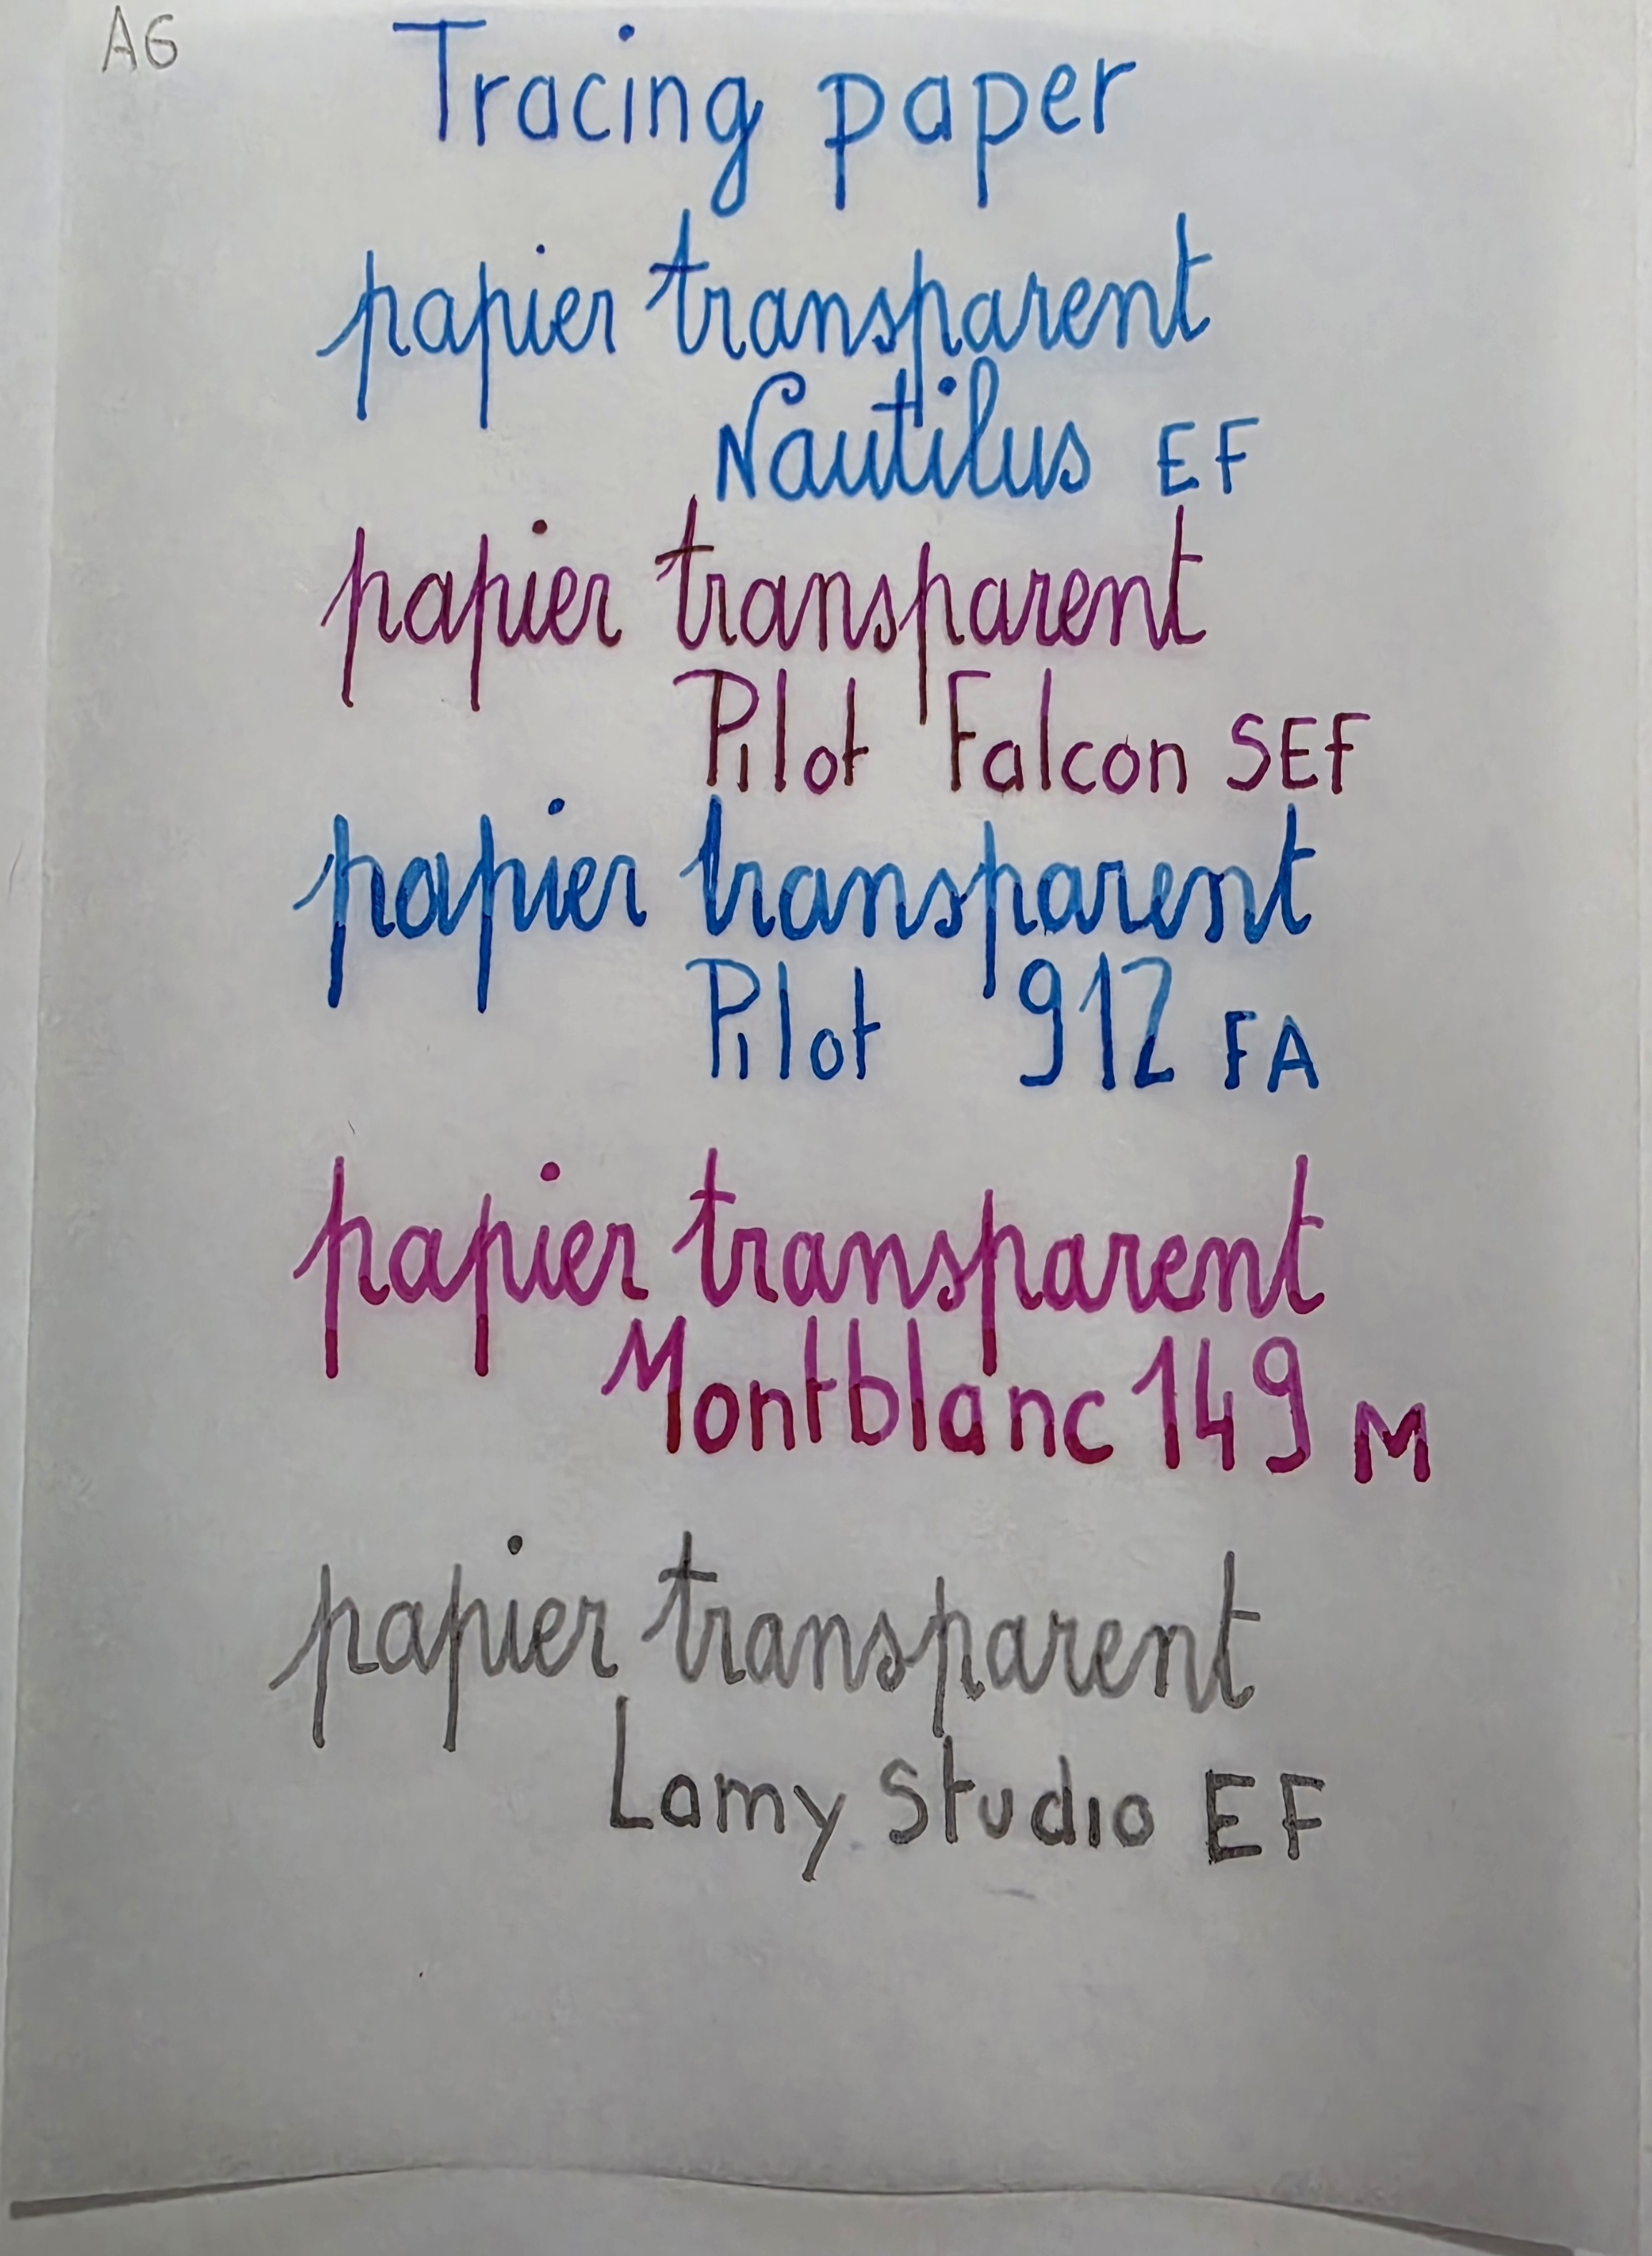 A6
Tracing paper
papier transparent
Nautilus EF
papier transparent
Pilot Falcon SEF
papier transparent
Pilot 912 FA
papier transparent
Montblanc 149 M
papier transparent
Lamy Studio EF